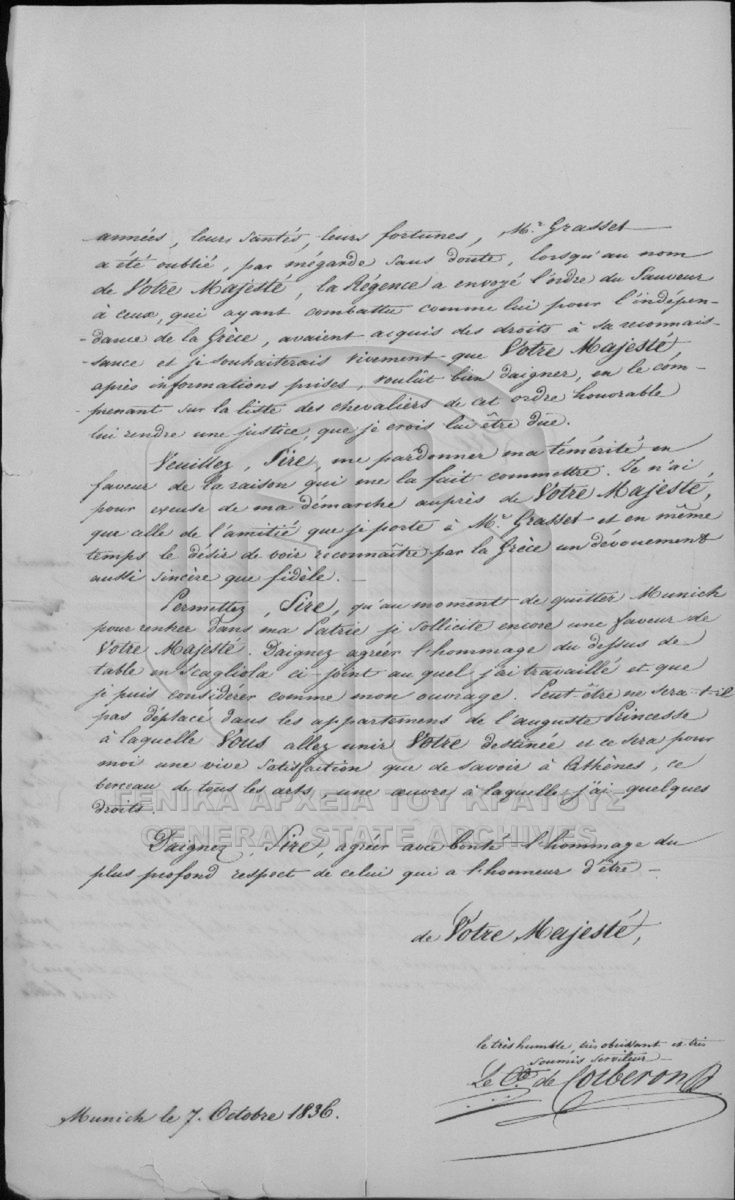 années, leurs santés, leurs fortunes, Mr Grasset
a été oublié, par mégarde sans doute, lorsqu'au nom
de Votre Majesté, la Régence a envoyé l'ordre du Sauveur
à ceux, qui ayant combattu comme lui pour l'indépen-
-dance de la Grèce, avaient acquis des droits à sa reconnais-
-sance et je souhaiterais vivement que Votre Majesté
après informations prises, voulût bien daigner, en le com-
-prenant sur la liste des chevaliers de cet ordre honorable
lui rendre une justice, que je crois lui être düe.
Veuillez, Sire, me pardonner ma témérité en
faveur de la raison qui me la fait commettre. Je n'ai
pour excuse de ma démarche auprès de Votre Majesté,
que celle de l'amitié que je porte à Mr Grasset et en même
temps le désir de voir reconnaître par la Grèce un dévouement
aussi sincère que fidèle. —
Permettez, Sire, qu'au moment de quitter Munich
pour rentrer dans ma Patrie je sollicite encore une faveur de
Votre Majesté. Daignez agréer l'hommage du dessus de
table en Scagliola ci-joint au quel j'ai travaillé et que
je puis considérer comme mon ouvrage. Peut-être ne sera-t-il
pas déplacé dans les appartemens de l'auguste Princesse
à laquelle Vous allez unir Votre destinée et ce sera pour
moi une vive satisfaction que de savoir à Athènes, ce
berceau de tous les arts, une œuvre à laquelle j'ai quelques
droits.
ΓΕΝΙΚΑ ΑΡΧΕΙΑ ΤΟΥ ΚΡΑΤΟΥΣ
GENERAL STATE ARCHIVES
Daignez, Sire, agréer avec bonté l'hommage du
plus profond respect de celui qui a l'honneur d'être —
de Votre Majesté,
le très humble, très obéissant et très
soumis serviteur
Le Cte de Corberon
Munich le 7. Octobre 1836.